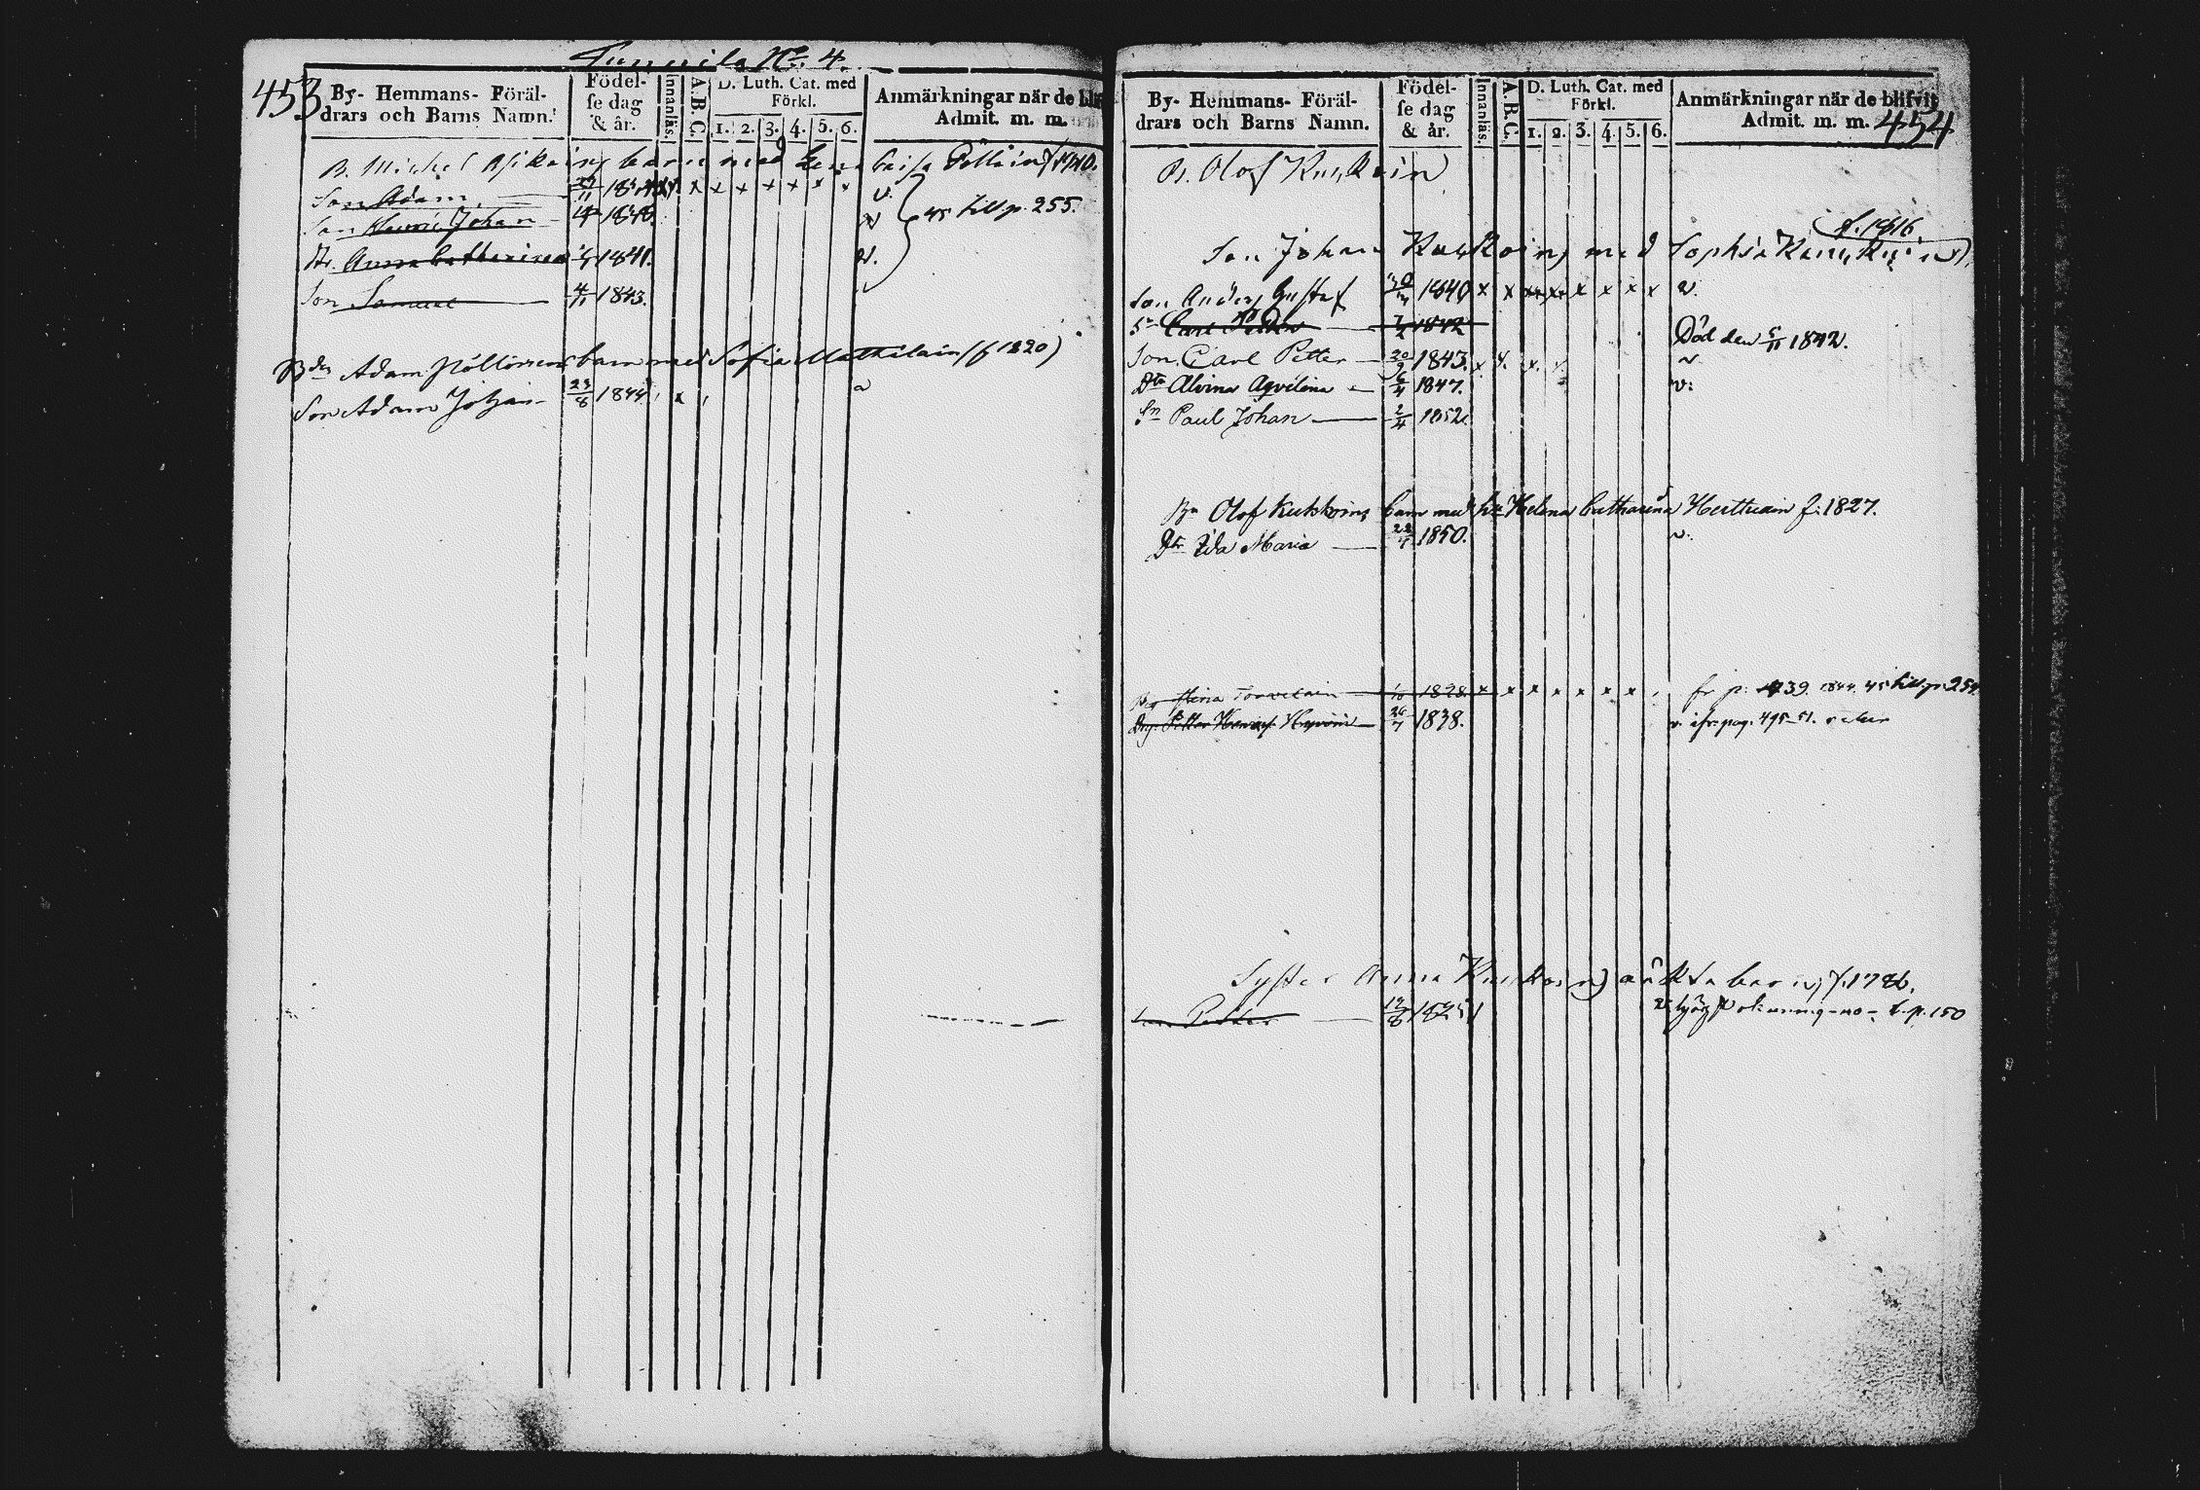 453 Tunnila No 4.
By- Hemmans- Föräldrars och Barns Namn. Födelse dag & år. Innanläs. A.B.C. D. Luth. Cat. med Förkl. 1. 2. 3. 4. 5. 6. Anmärkningar när de bli Admit. m. m.
B. Michel Asikains barn med Lena Caisa Pöllöin f. 1810.
Son Adam. 11 x x x x x x x v.
Son Henric Johan 1840. v 45 till p. 255.
Dr. Anna Catharina 1841. v.
Son Samuel 4/11 1843.
Bdn Adam Pöllöinens barn med Sofia Matthilain (f 1820)
Son Adam Johan 23/8 1844 x
By- Hemmans- Föräldrars och Barns Namn. Födelse dag & år. Innanläs. A.B.C. D. Luth. Cat. med Förkl. 1. 2. 3. 4. 5. 6. Anmärkningar när de blifvit Admit. m. m. 454
B. Olof Kukkoin
f. 1816
Son Johan Kukkoins med Sophia
Son Anders Gustaf 1840 x x x x x x x x v.
Sn Carl Petter 1842 Död den 5/11 1842.
Son Carl Petter 20/9 1843. x x. x. x v
Dtr Alvina Aqvilina 6/4 1847. v.
Sn Paul Johan 2/4 1852.
Bn Olof Kukkoins barn med hu Helena Catharina Herttuain f. 1827.
Dtr Ida Maria 1850. v.
1828 x x x x x x x fr p. 739. 1844. 45 till p. 254.
Petter 26/7 1838. v. ifr. pag. 495-51.
Syster Anna Kukkoins oäkta barn f. 1786.
Son Petter 12/8 1825 t. p. 150